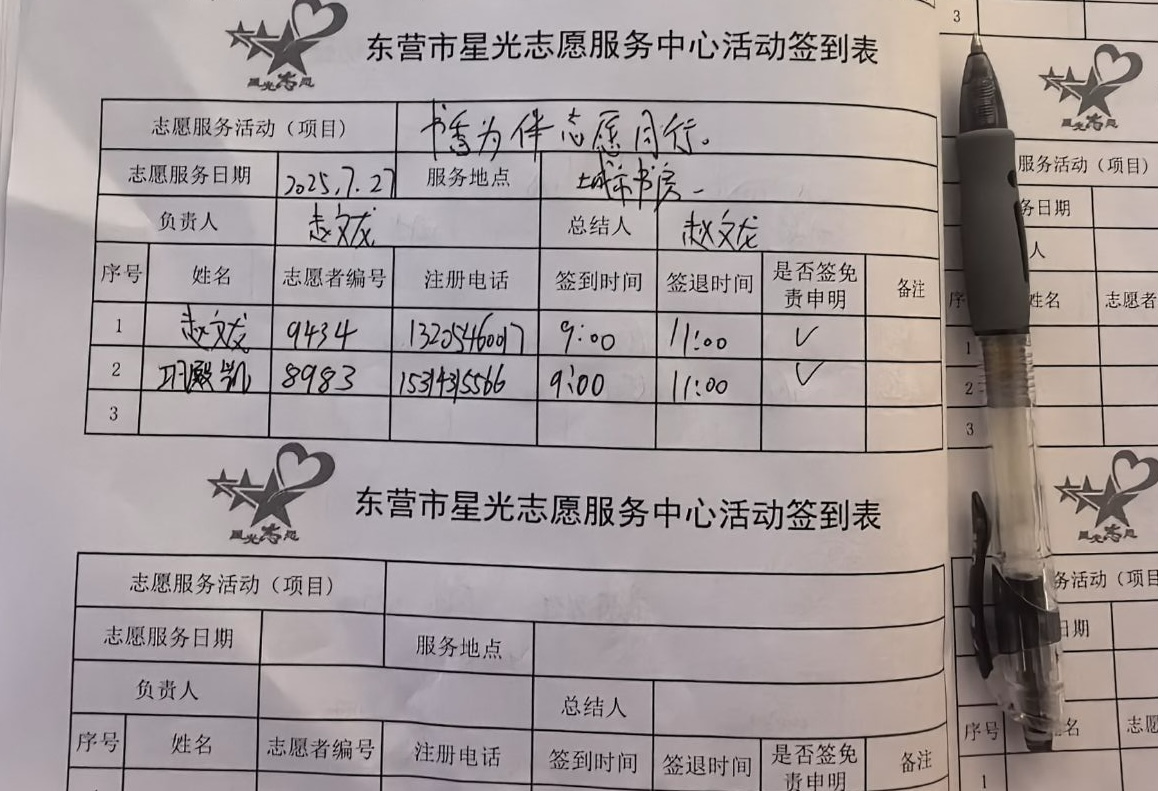 星光志愿
东营市星光志愿服务中心活动签到表
志愿服务活动（项目） 书香为伴志愿同行。
志愿服务日期 2025.7.27 服务地点 城市书房
负责人 赵文龙 总结人 赵文龙
序号 姓名 志愿者编号 注册电话 签到时间 签退时间 是否签免责申明 备注
1 赵文龙 9434 13205460017 9:00 11:00 ✓
2 巩殿凯 8983 15314315566 9:00 11:00 ✓
3
星光志愿
东营市星光志愿服务中心活动签到表
志愿服务活动（项目）
志愿服务日期 服务地点
负责人 总结人
序号 姓名 志愿者编号 注册电话 签到时间 签退时间 是否签免责申明 备注
3
星光志愿
服务活动（项目）
务日期
人
序 姓名 志愿者
1
2
3
星光志愿
务活动（项目
日期
序号 名 志愿
1